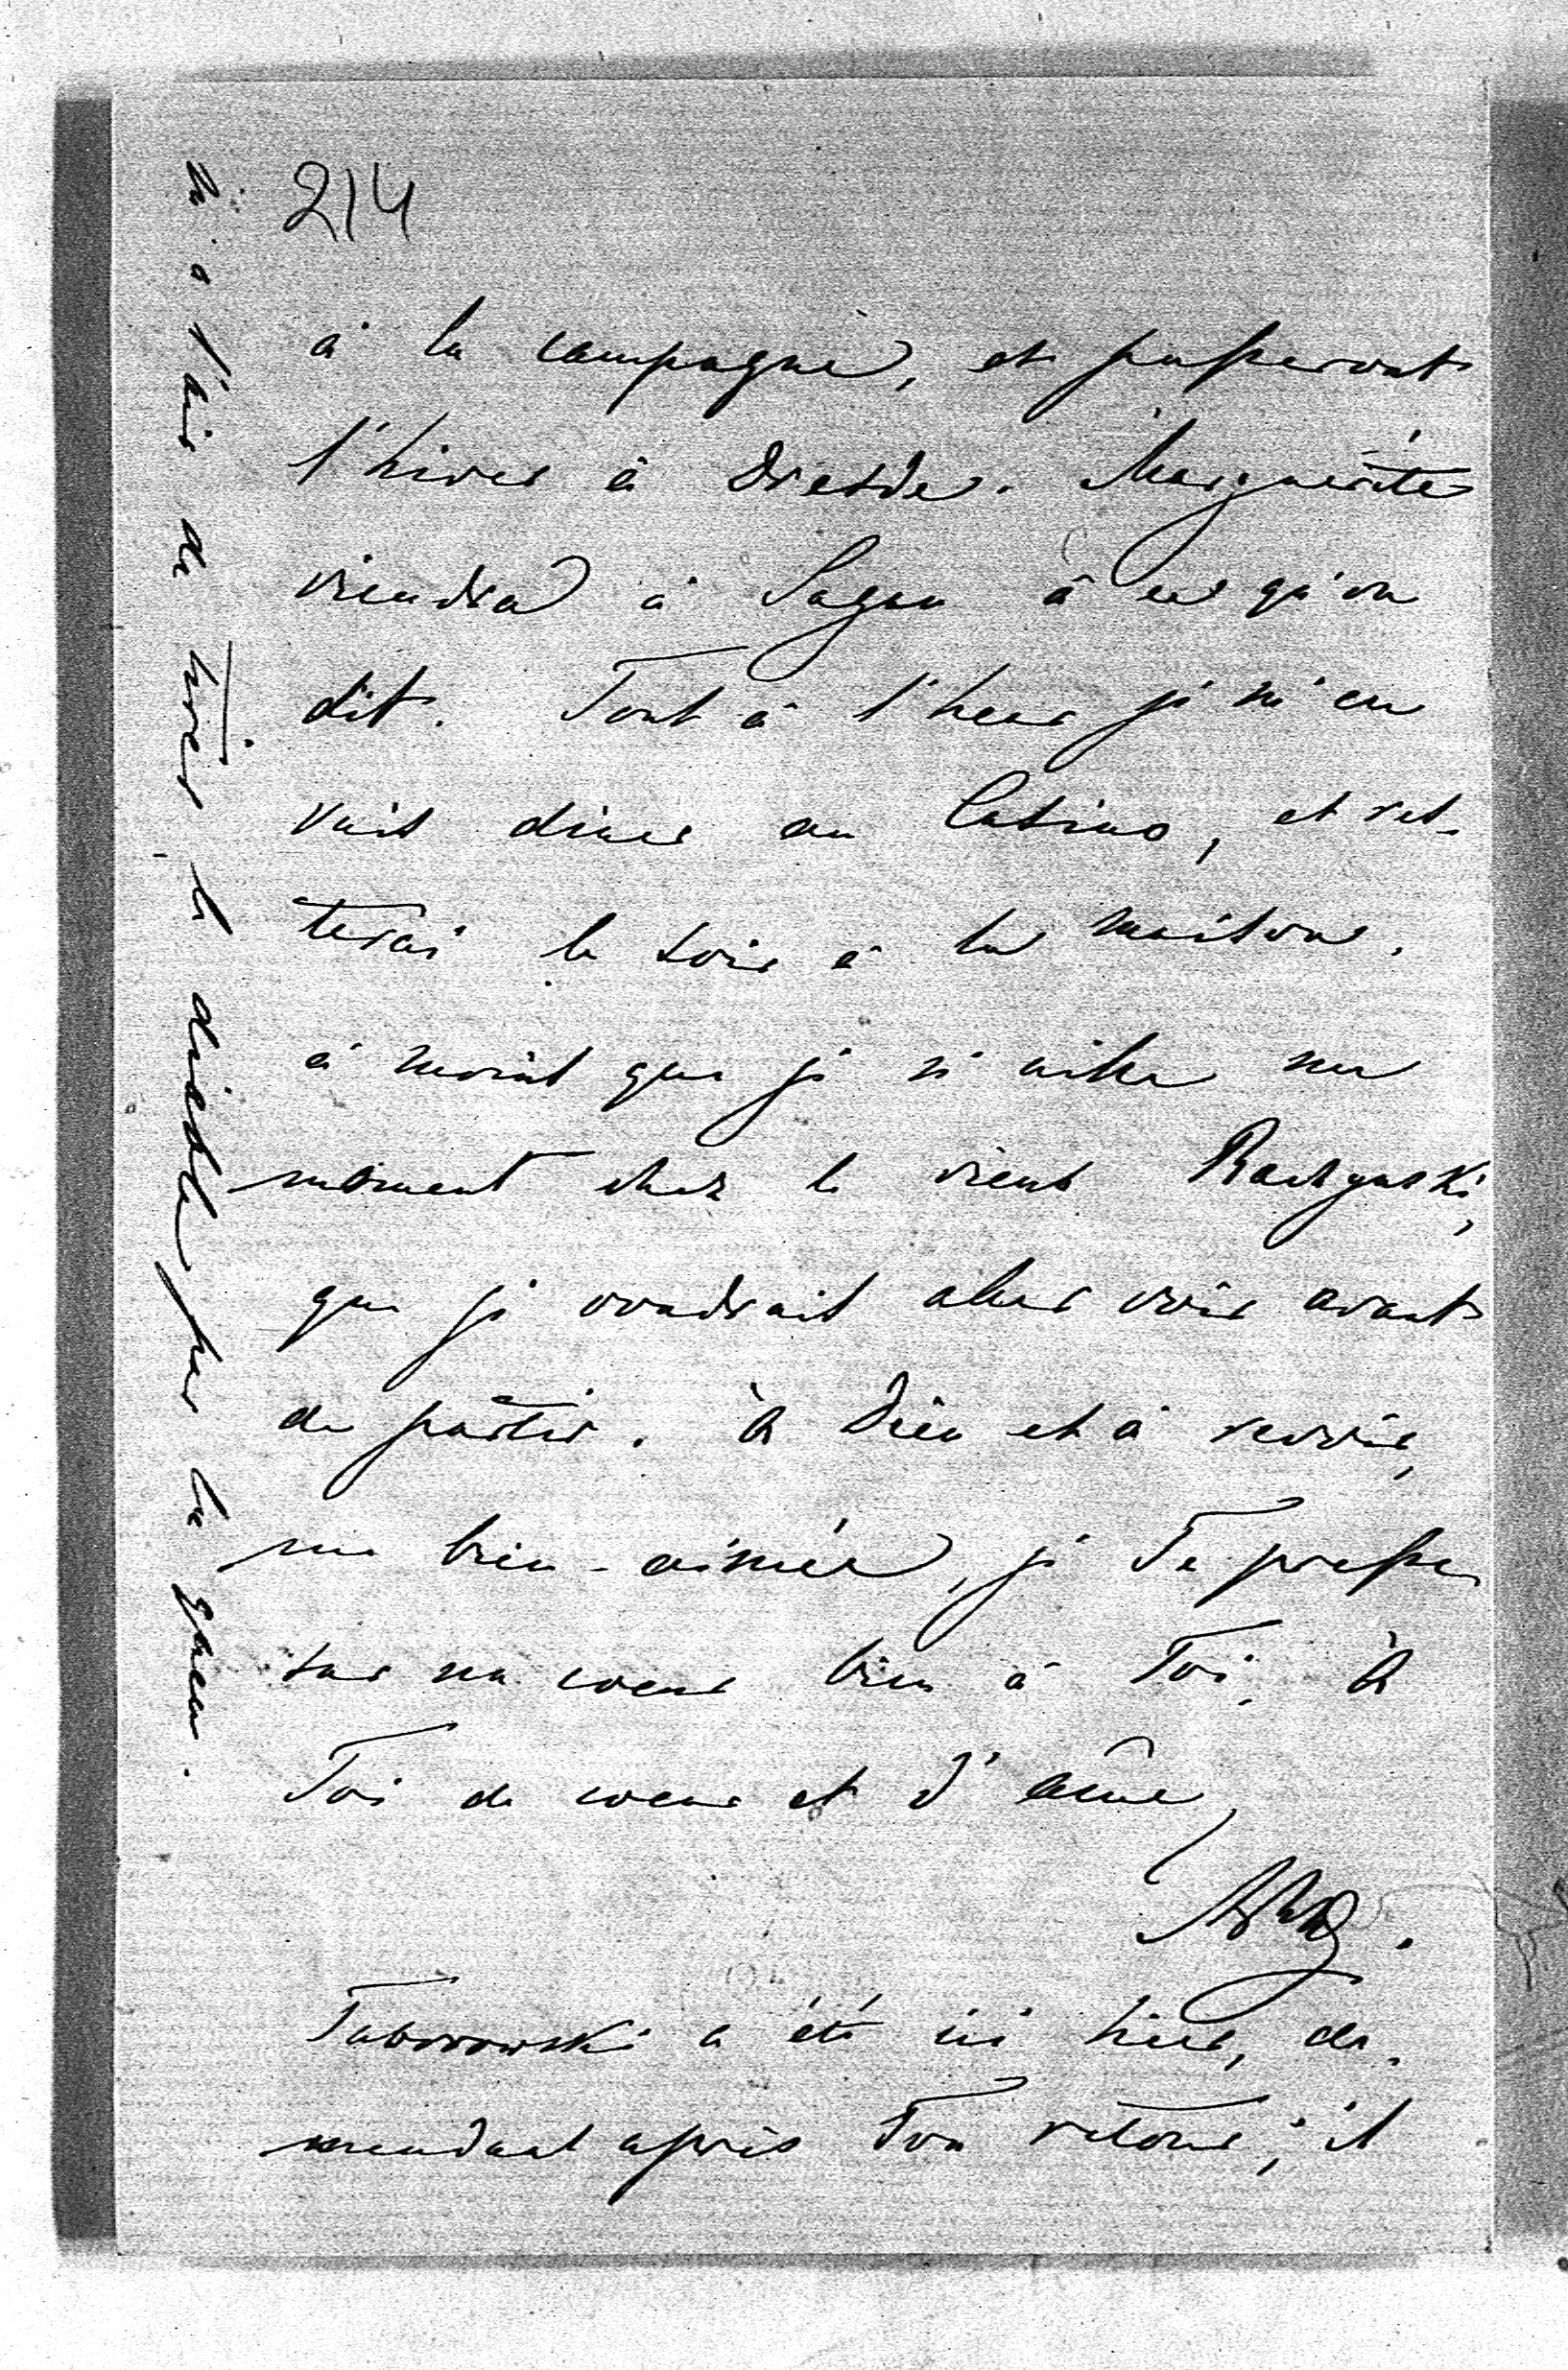 214
à la campagne, et passeront
l'hiver à Dresde. Marguerite
viendra à Sagan à ce qu'on
dit. Tout à l'heure je m'en
vais diner au Casino, et res-
terai le soir à la maison,
à moins que je n'aille un
moment chez le vieux Raczynski,
que je voudrais aller voir avant
de partir. À Dieu et à revoir,
ma bien-aimée, je Te presse
sur mon coeur bien à Toi. À
Toi de coeur et d'âme,
Taborowski a été ici hier, de-
mandant après Ton retour; il
a l'air de tirer le diable par la queue.